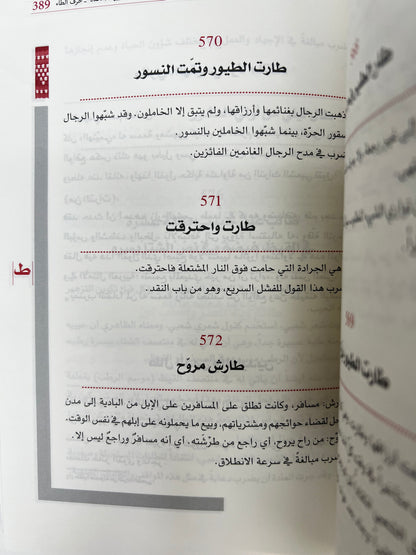 389
حرف الطاء
570
طارت الطيور وتمّت النسور
ذهبت الرجال بغنائمها وأرزاقها، ولم يتبق إلا الخاملون. وقد شبّهوا الرجال
صقور الحرّة، بينما شبّهوا الخاملين بالنسور.
ضرب في مدح الرجال الغانمين الفائزين.
571
طارت واحترقت
هي الجرادة التي حامت فوق النار المشتعلة فاحترقت.
ضرب هذا القول للفشل السريع، وهو من باب النقد.
ط
572
طارش مروّح
رش: مسافر، وكانت تطلق على المسافرين على الإبل من البادية إلى مدن
لقضاء حوائجهم ومشترياتهم، وبيع ما يحملونه على إبلهم في نفس الوقت.
وّح: من راح يروح، أي راجع من طرْشته. أي انه مسافرٌ وراجعٌ ليس إلا.
ضرب مبالغةً في سرعة الانطلاق.